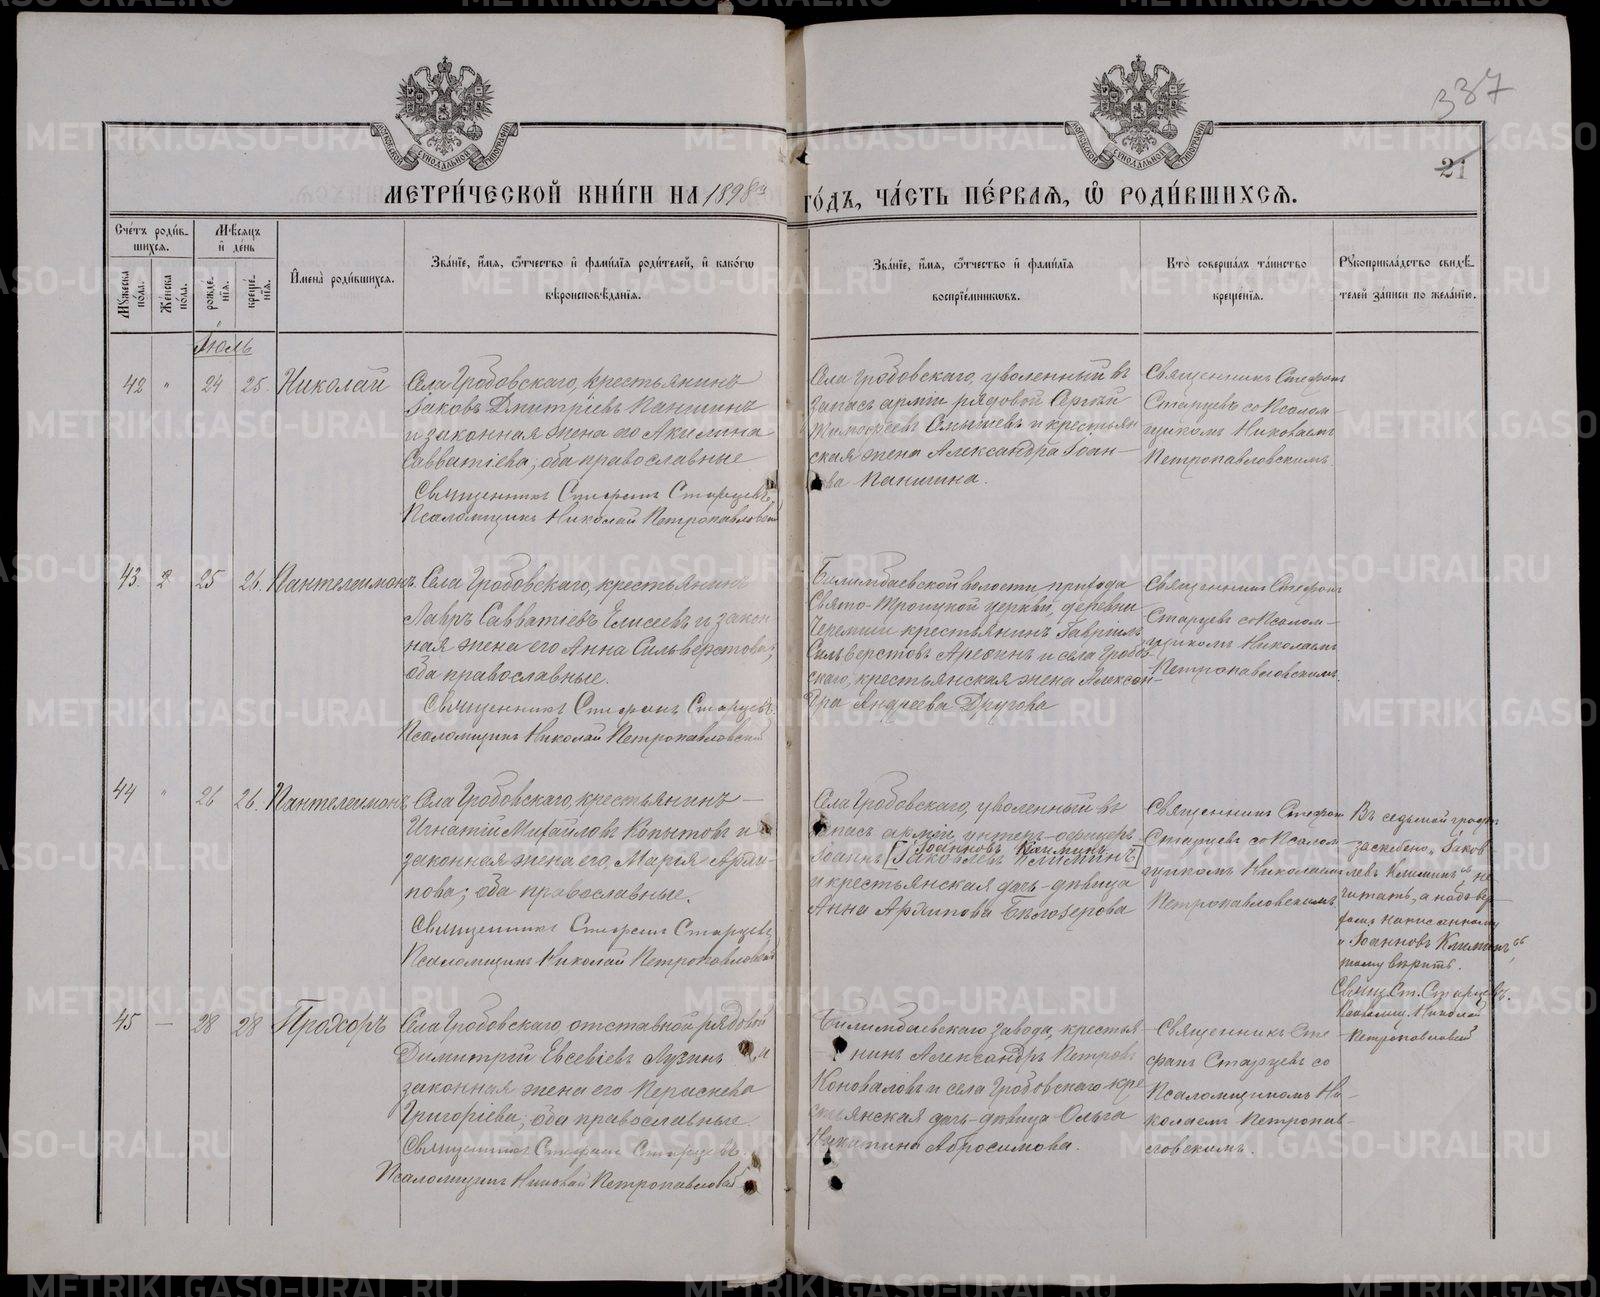 337
21
МОСКОВСКОЙ СѴНОДАЛЬНОЙ ТИПОГРАФІИ
МОСКОВСКОЙ СѴНОДАЛЬНОЙ ТИПОГРАФІИ
МЕТРИ́ЧЕСКОЙ КНИ́ГИ НА 1898й ГО́ДЪ, ЧА́СТЬ ПЕ́РВАѦ, Ѽ РОДИ́ВШИХСѦ.
Сче́тъ роди́в-
шихсѧ.
Мѣ́сѧцъ
и҆ де́нь
Мꙋ́жеска
по́ла.
Же́нска
по́ла.
рожде-
нїѧ.
креще́-
нїѧ.
И҆мена̀ роди́вшихсѧ.
Зва́нїе, и҆́мѧ, ѻ҆́тчество и҆ фами́лїѧ роди́телей, и҆ како́гѡ
вѣроисповѣ́данїѧ.
Зва́нїе, и҆́мѧ, ѻ҆́тчество и҆ фами́лїѧ
воспрїе́мникѡвъ.
Кто̀ соверша́лъ та́инство
креще́нїѧ.
Рꙋкоприкла́дство свидѣ́-
телей за́писи по жела́нїю.
Іюль
42 " 24 25. Николай
Села Гробовскаго, крестьянинъ
Іаковъ Дмитріевъ Паншинъ
и законная жена его Акилина
Савватіева, оба православные
Священникъ Стефанъ Старцевъ
Псаломщикъ Николай Петропавловскій
Села Гробовскаго, уволенный въ
запасъ арміи рядовой Сергѣй
Тимофеевъ и крестьян
ская жена Александра Іоан-
ова Паншина.
Священникъ Стефанъ
Старцевъ со Псалом
щикомъ Николаемъ
Петропавловскимъ.
43. 2 25 26. Пантелеимонъ.
Села Гробовскаго, крестьянинъ
Лавръ Савватіевъ Елисеевъ и закон
ная жена его Анна Сильверстова;
оба православные.
Священникъ Стефанъ Старцевъ
Псаломщикъ Николай Петропавловскій
Билимбаевской волости прихода
Свято-Троицкой церкви, деревни
Черемши крестьянинъ Гавріилъ
Сильверстовъ и села Гробов-
скаго, крестьянская жена Алексан-
дра Андреева Другова
Священникъ Стефанъ
Старцевъ со Псалом-
щикомъ Николаемъ
Петропавловскимъ.
44 " 26 26. Пантелеимонъ
Села Гробовскаго, крестьянинъ —
Игнатій Михайловъ Копытовъ и
законная жена его, Марья Архи-
пова; оба православные.
Священникъ Стефанъ Старцевъ
Псаломщикъ Николай Петропавловскій
Села Гробовскаго, уволенный въ
запасъ арміи унтеръ-офицеръ
Іоанновъ Климинъ
Іоаннъ [Іаковлевъ Климинъ]
и крестьянская дочь-дѣвица
Анна Архипова Бѣлозерова
Священникъ Стефанъ
Старцевъ со Псалом
щикомъ Николаемъ
Петропавловскимъ
Въ седьмой графѣ
заскобено „Іаков
левъ Климинъ“ не
читать, а надъ вер-
фомъ написанному
„Іоанновъ Климинъ“
тому вѣрить.
Свящ. Ст. Старцевъ.
Псаломщ. Николай
Петропавловскій
45 — 28 28 Прохоръ
Села Гробовскаго, отставной рядовой
Димитрій Евсевіевъ Лузинъ и
законная жена его
Григоріева, оба православные
Священникъ Стефанъ Старцевъ.
Псаломщикъ Николай Петропавловскій
Билимбаевскаго завода, крестья
нинъ Александръ Петровъ
Коноваловъ и села Гробовскаго кре
стьянская дочь-дѣвица Ольга
Никитина Абросимова.
Священникъ Сте
фанъ Старцевъ со
Псаломщикомъ Ни-
колаемъ Петропав-
ловскимъ.